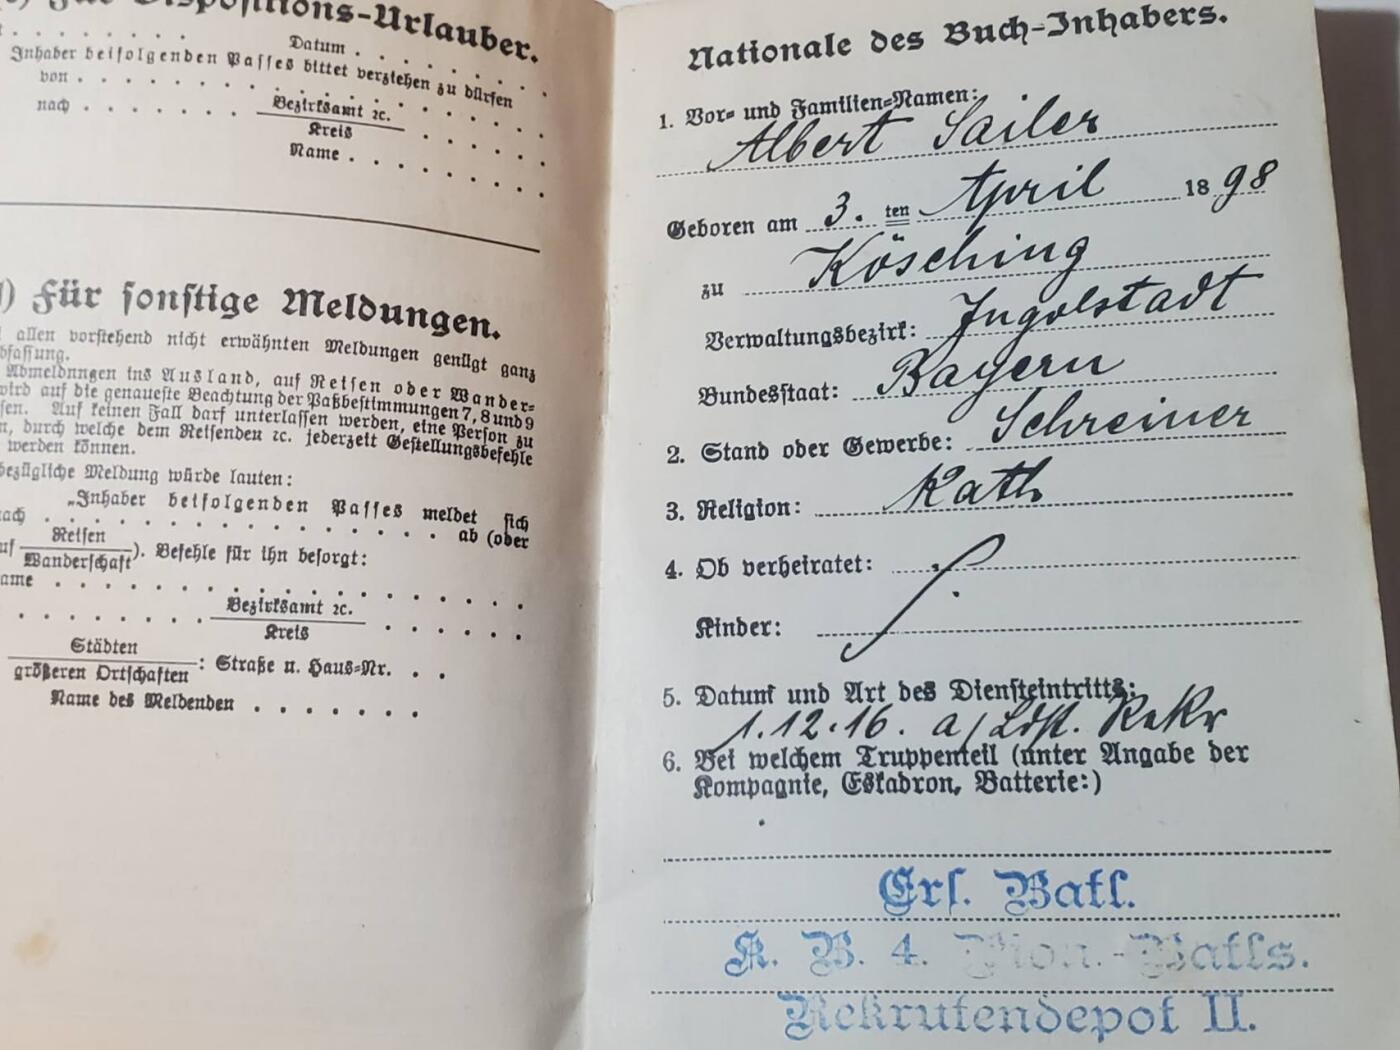 Für Dispositions-Urlauber.
Datum . . . . . .
Inhaber beifolgenden Passes bittet verziehen zu dürfen
von . . . . . . . . . . . . .
nach . . . . . . . Bezirksamt ⁊c. . . . . .
Kreis
Name . . . . . . . .
) Für sonstige Meldungen.
allen vorstehend nicht erwähnten Meldungen genügt ganz
bfassung.
Abmeldnngen ins Ausland, auf Reisen oder Wander=
wird auf die genaueste Beachtung der Paßbestimmungen 7, 8 und 9
sen. Auf keinen Fall darf unterlassen werden, eine Person zu
n, durch welche dem Reisenden ⁊c. jederzeit Gestellungsbefehle
werden können.
bezügliche Meldung würde lauten:
„Inhaber beifolgenden Passes meldet sich
ach . . . . . . . . . . . . . . . ab (oder
uf Reisen
Wanderschaft ). Befehle für ihn besorgt:
ame . . . . . . . . . . . . . . . .
. . . . . . . Bezirksamt ⁊c. . . . . .
Kreis
Städten
größeren Ortschaften : Straße u. Haus=Nr. . .
Name des Meldenden . . . . . . .
Nationale des Buch-Inhabers.
1. Vor= und Familien=Namen:
Albert Sailer
Geboren am 3. ten April 1898
zu Kösching
Verwaltungsbezirk: Ingolstadt
Bundesstaat: Bayern
2. Stand oder Gewerbe: Schreiner
3. Religion: Kath
4. Ob verheiratet:
Kinder:
5. Datum und Art des Diensteintritts:
1.12.16. a/Ldst. Rekr
6. Bei welchem Truppenteil (unter Angabe der
Kompagnie, Eskadron, Batterie:)
Ers. Batl.
K. B. 4. Pion.-Batls.
Rekrutendepot II.